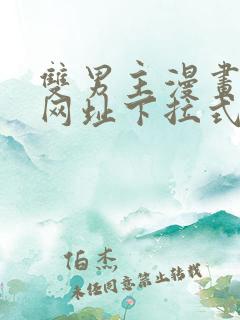 雙男主漫畫
网址下拉式
伯杰
未经同意禁止转载